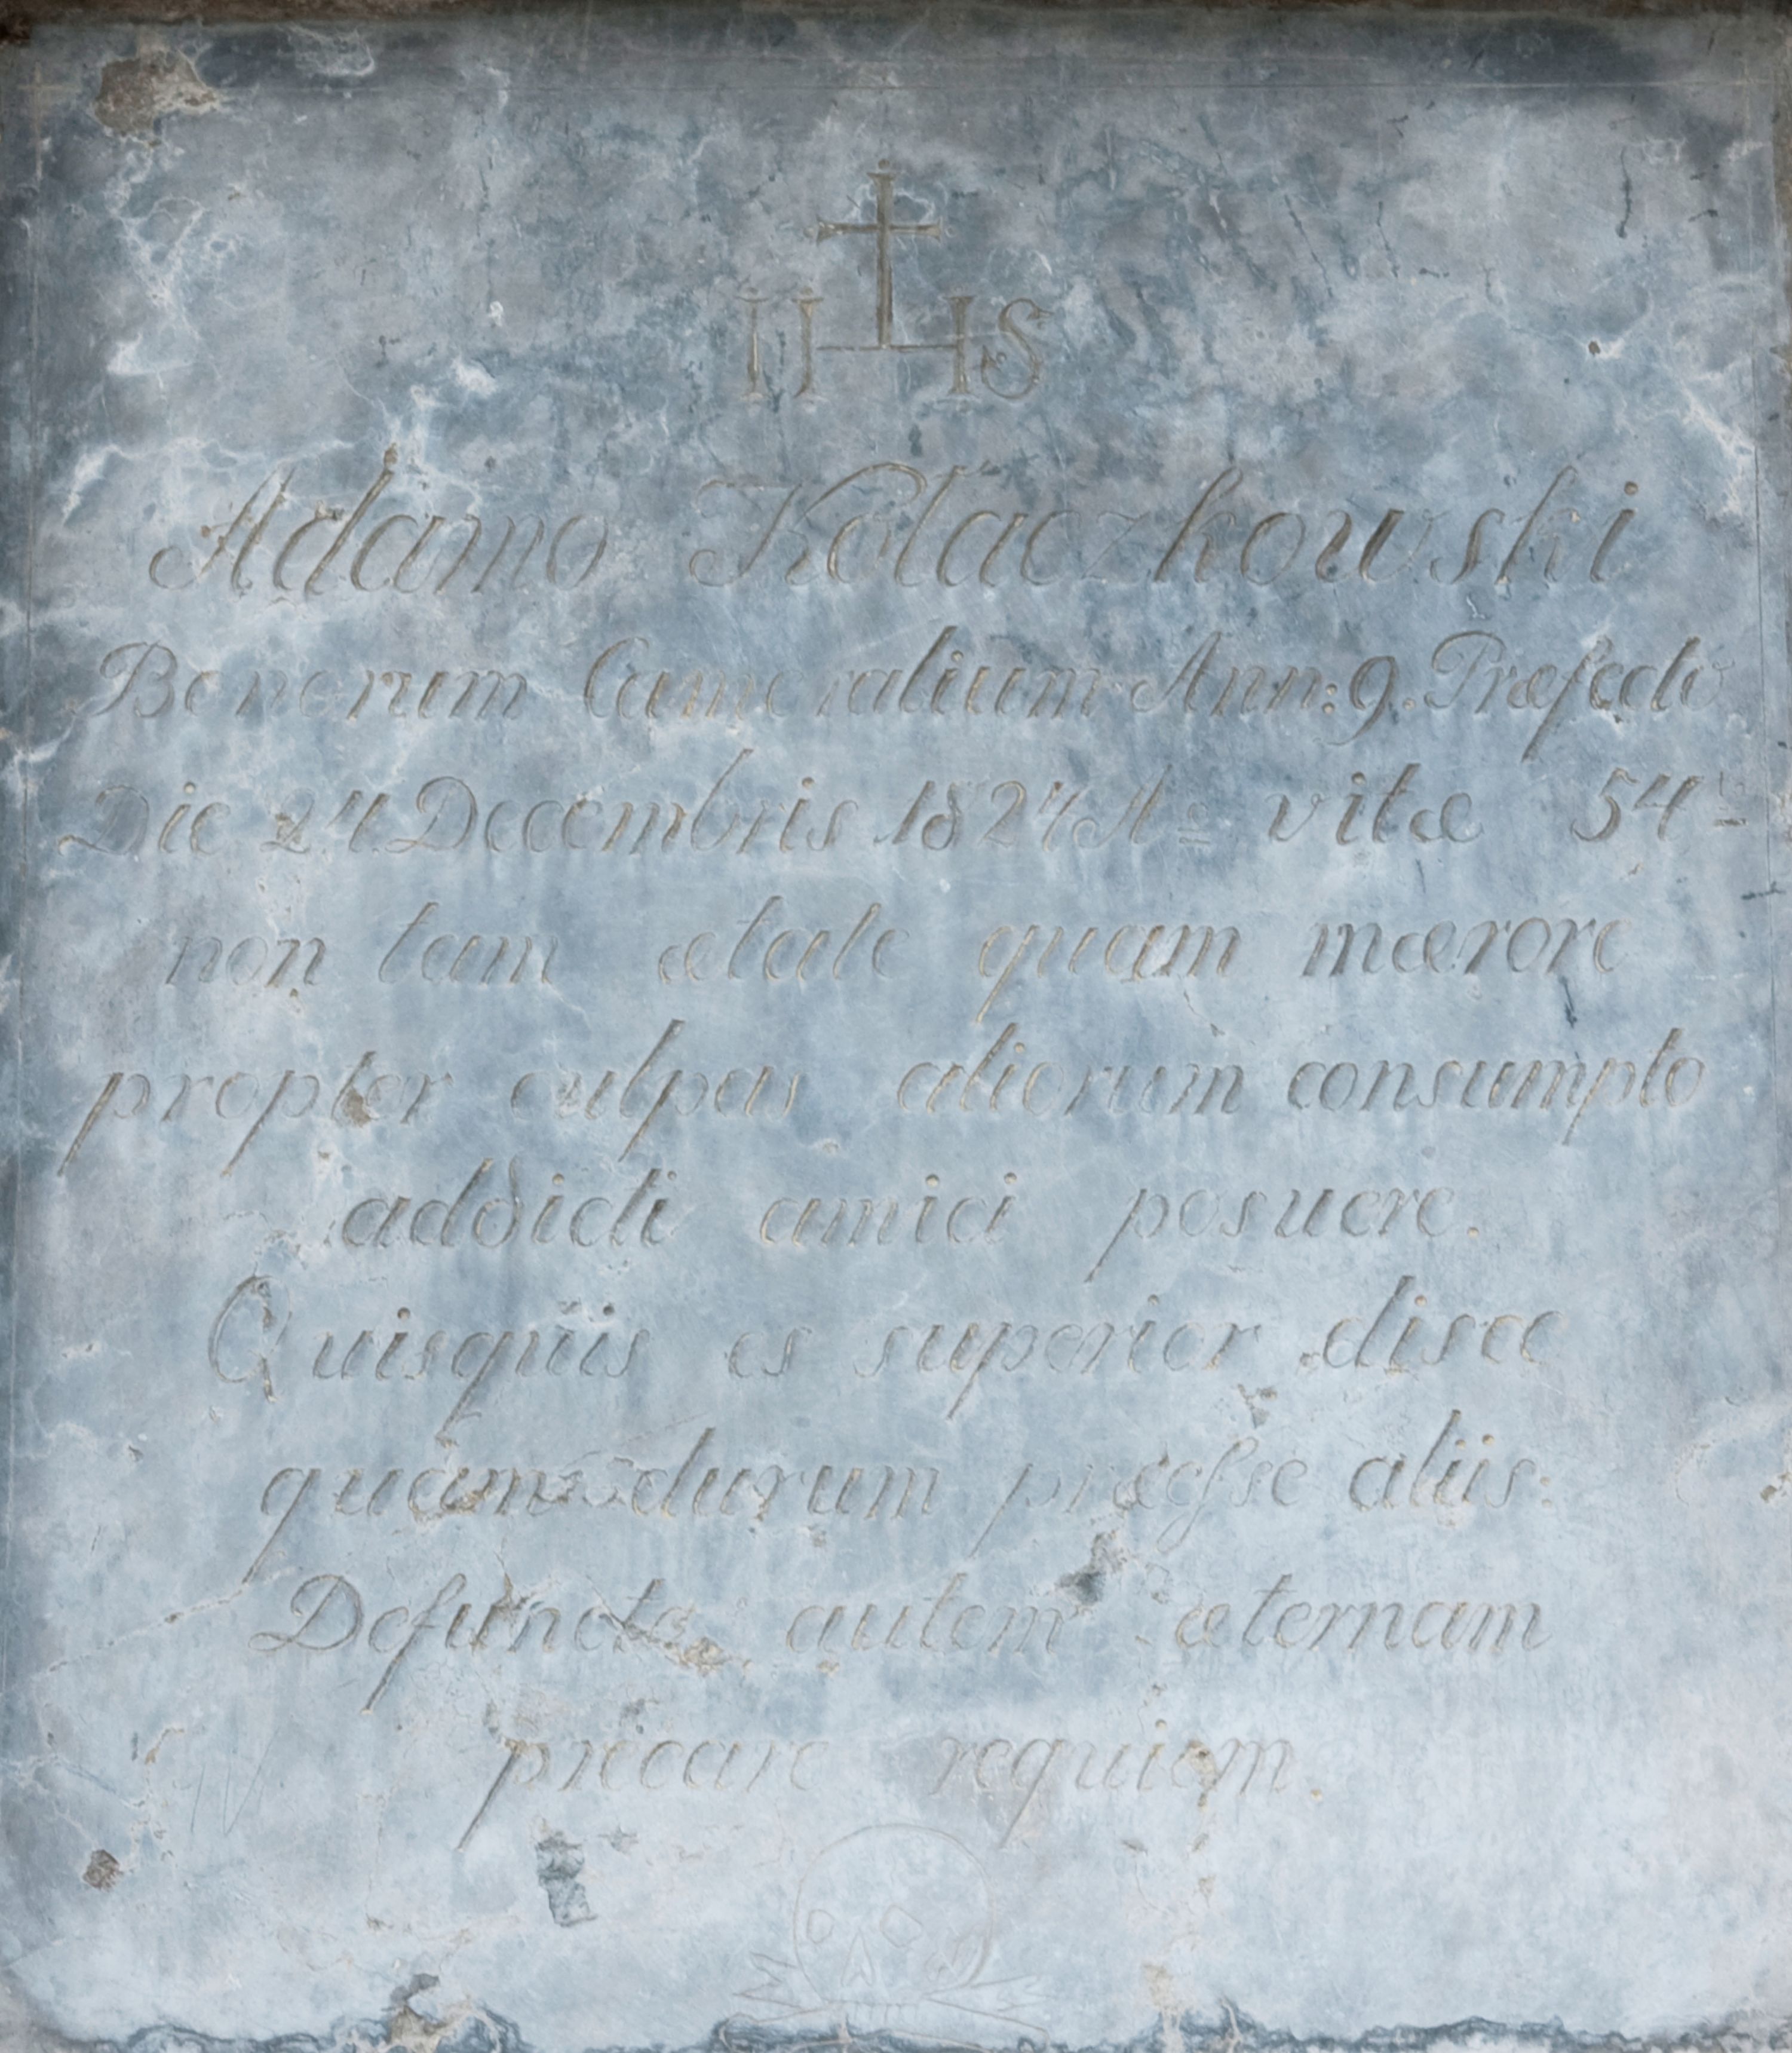 IHS
Adamo Kołaczkowski
Bonorum Cameralium Ann: 9. Præfecto
Die 24 Decembris 1824 Aº vitæ 54
non tam ætate quam mærore
propter culpas aliorum consumpto
addicti amici posuere.
Quisquis es superior disce
quam durum præesse aliis:
Defuncto autem æternam
precare requiem.